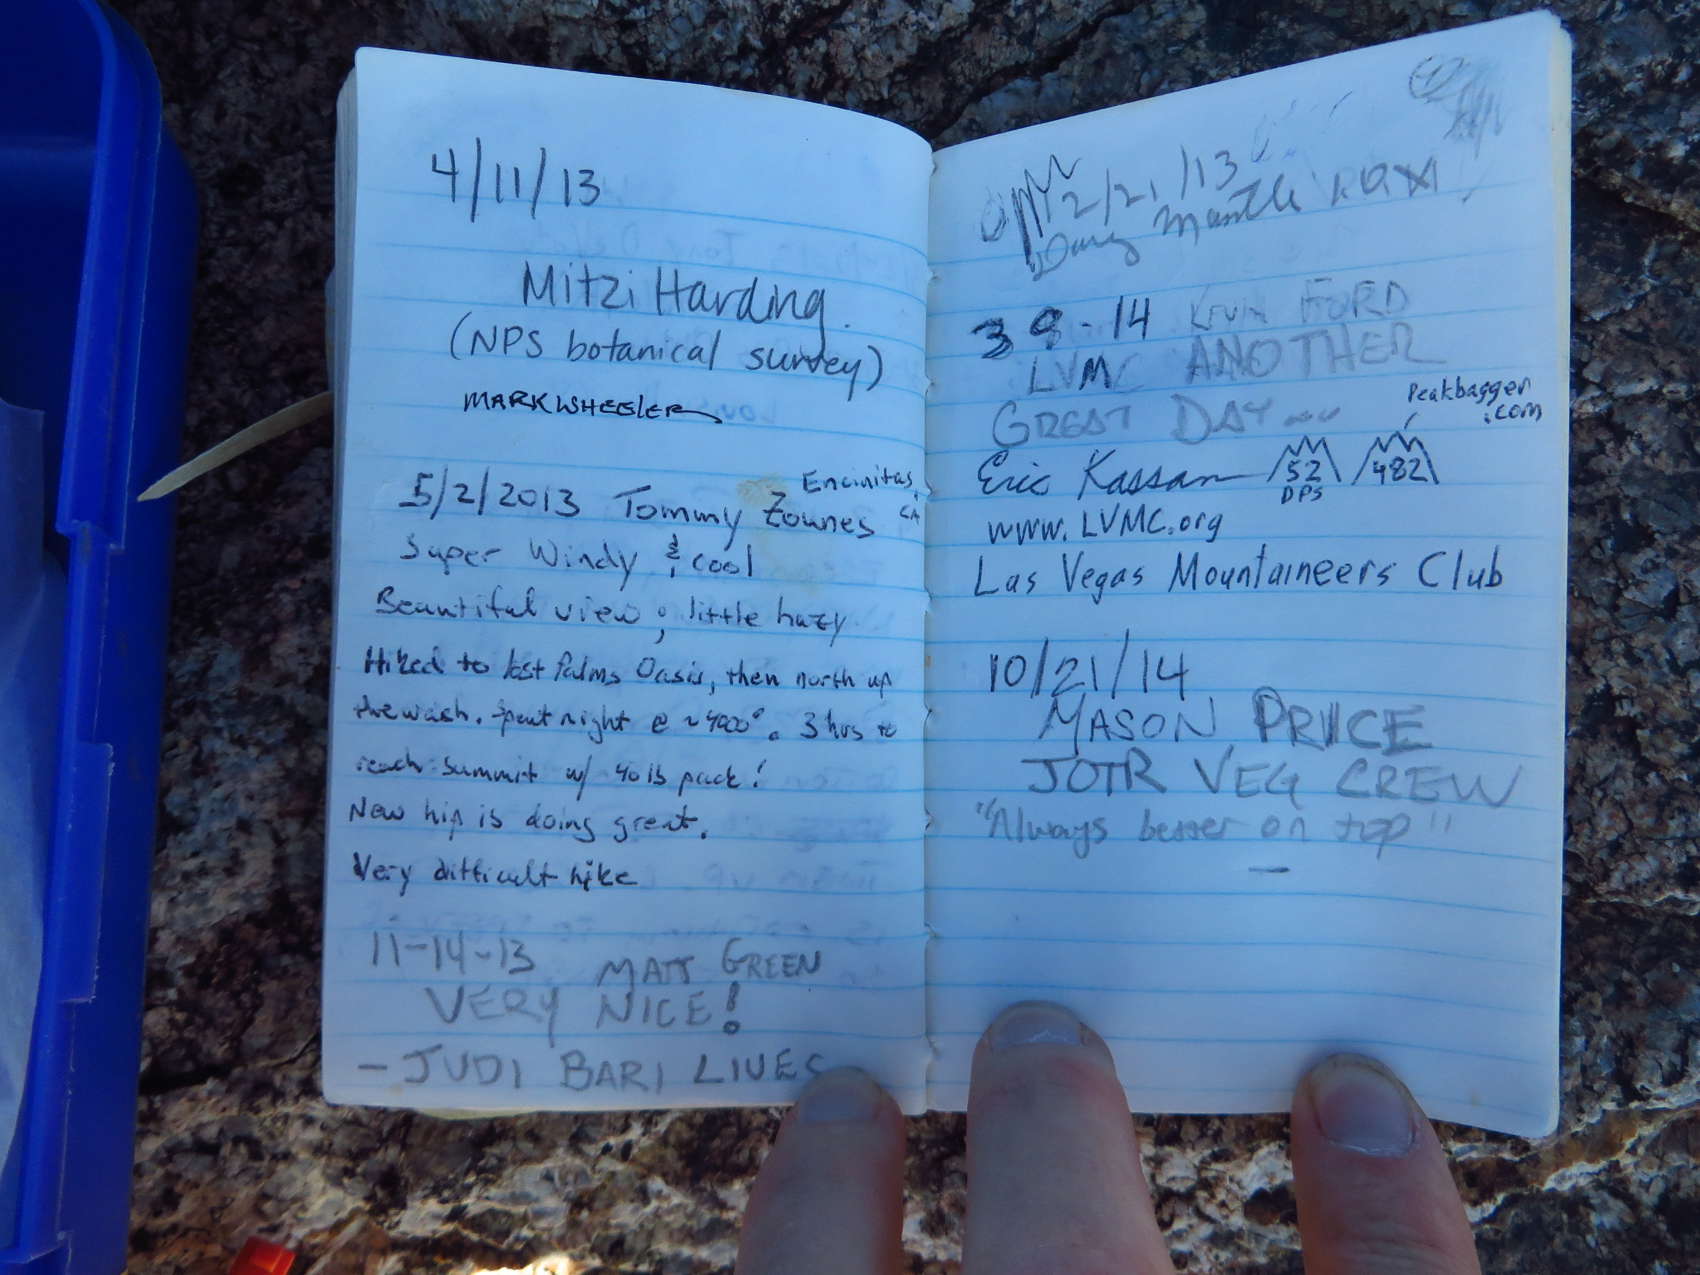 4/11/13
Mitzi Harding.
(NPS botanical survey)
MARK WHEELER
5/2/2013 Tommy Zounes Encinitas, CA
Super Windy & cool
Beautiful view; little hazy
Hiked to lost Palms Oasis, then north up
the wash. Spent night @ ~4900°. 3 hrs to
reach summit w/ 40 lb pack!
New hip is doing great.
Very difficult hike
11-14-13 MATT GREEN
VERY NICE!
- JUDI BARI LIVES
12/21/13
3 9-14 KEVIN FORD
LVMC ANOTHER
GREAT DAY...
Peakbagger
.com
Eric Kassan 52 482
DPS
www.LVMC.org
Las Vegas Mountaineers Club
10/21/14
MASON PRICE
JOTR VEG CREW
"Always better on top"
-